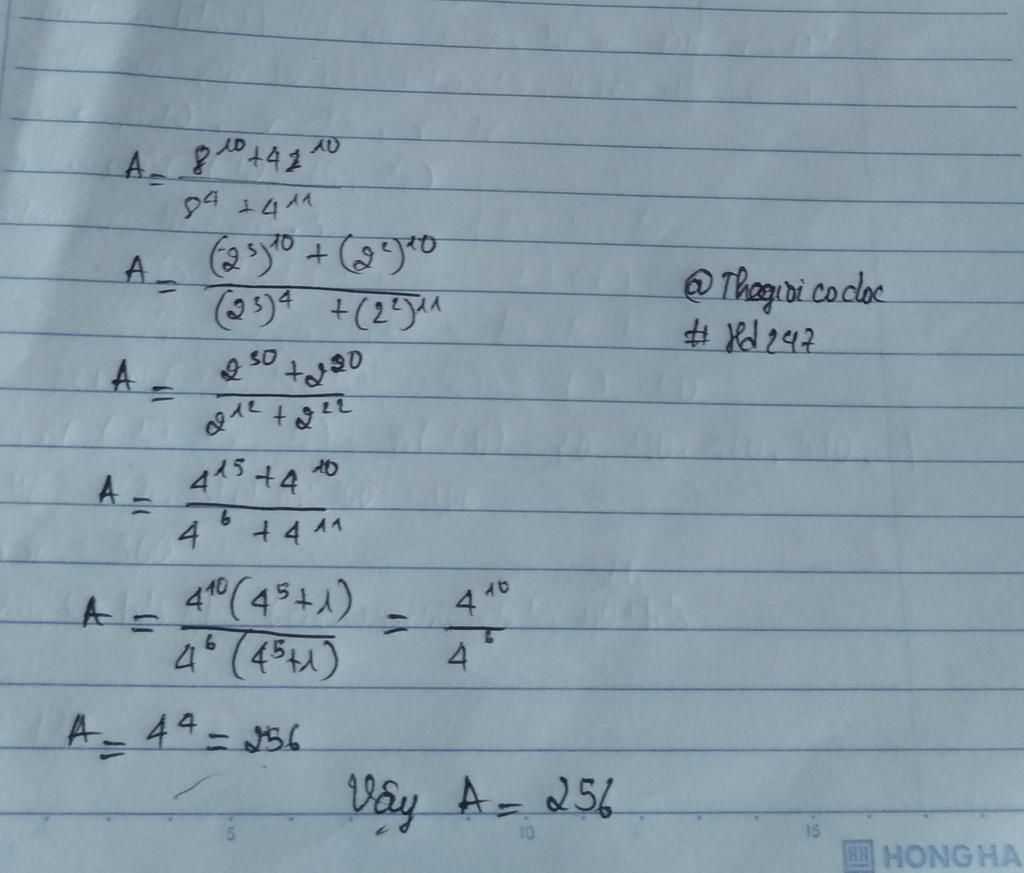 A = (8^10 + 4^10) / (8^4 + 4^11)
A = ((2^3)^10 + (2^2)^10) / ((2^3)^4 + (2^2)^11)
@Thegioicodoc
# Hd247
A = (2^30 + 2^20) / (2^12 + 2^22)
A = (4^15 + 4^10) / (4^6 + 4^11)
A = 4^10(4^5+1) / 4^6(4^5+1) = 4^10 / 4^6
A = 4^4 = 256
Vậy A = 256
5 10 15
HONG HA